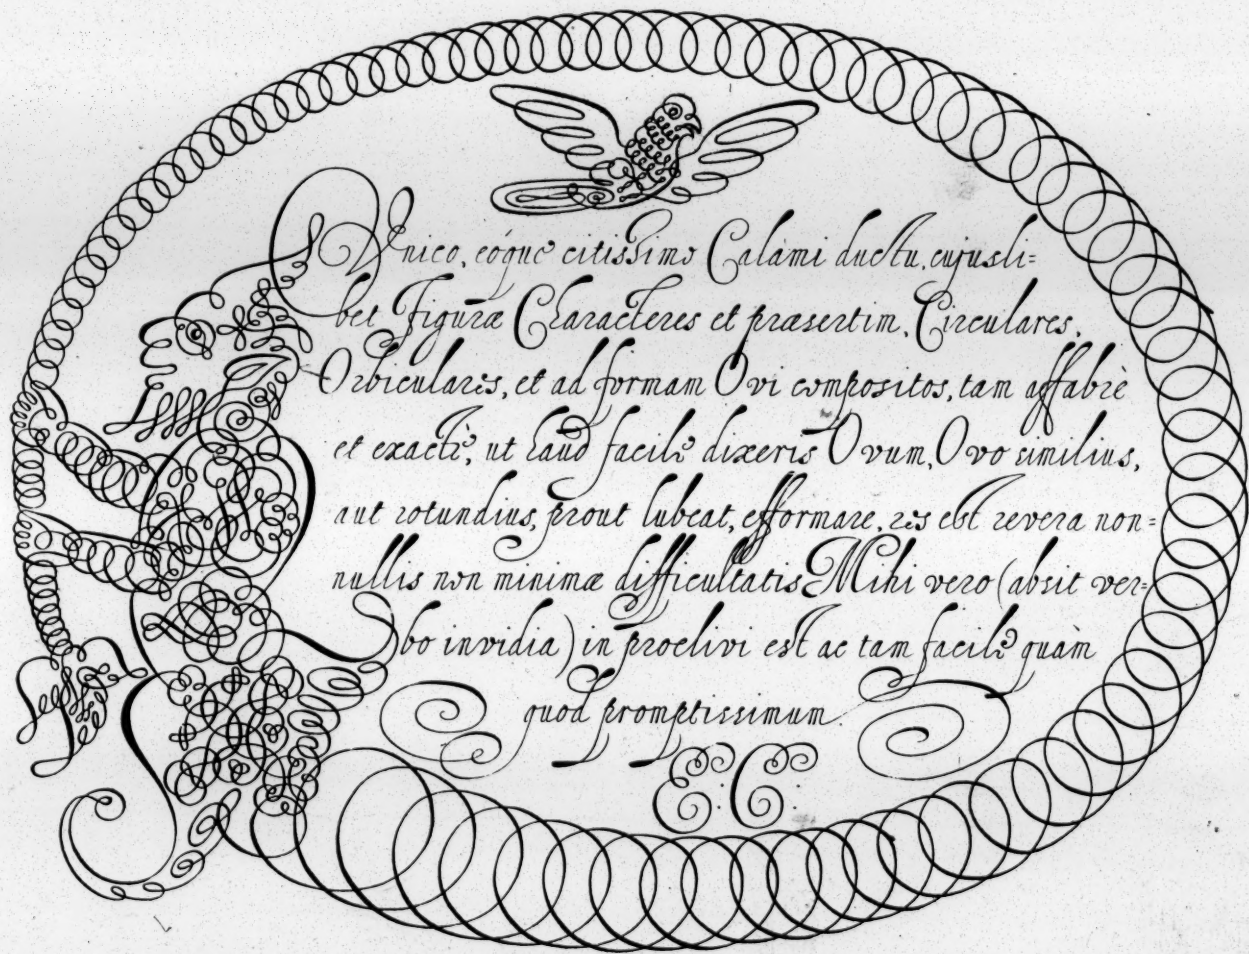 Vnico, eóque citissimo Calami ductu, cujusli=
bet Figuræ Characteres et præsertim, Circulares,
Orbiculares, et ad formam Ovi compositos, tam affabrè
et exactè, ut haud facilè dixeris Ovum, Ovo similius,
aut rotundius, prout lubeat, efformare, res est revera non=
nullis non minimæ difficultatis Mihi vero (absit ver=
bo invidia) in proclivi est ac tam facilè quàm
quod promptissimum.
E. C.